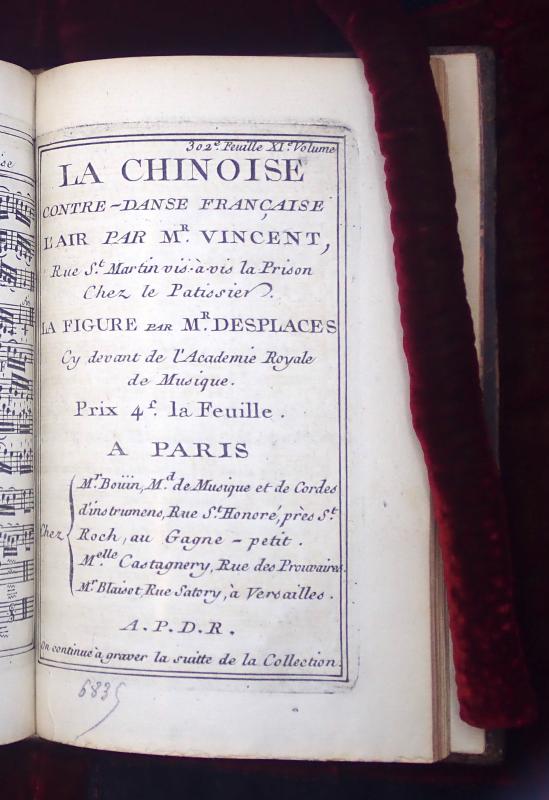 302e. Feuille XIe. Volume
LA CHINOISE
CONTRE-DANSE FRANÇAISE
L'AIR PAR MR. VINCENT,
Rue St. Martin vis-à-vis la Prison
Chez le Patissier.
LA FIGURE PAR MR. DESPLACES
Cy devant de l'Academie Royale
de Musique.
Prix 4s. la Feuille.
A PARIS
Chez
Mr. Boüin, Md. de Musique et de Cordes
d'instrumens, Rue St. Honoré, près St.
Roch, au Gagne-petit.
Melle. Castagnery, Rue des Prouvaires.
Mr. Blaisot, Rue Satory, à Versailles.
A.P.D.R.
On continue à graver la suitte de la Collection.
6835